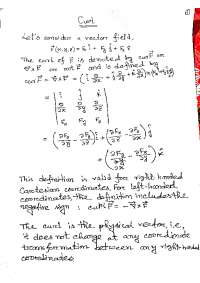 Curl
Let's consider a vector field.
F(x,y,z) = F₁ î + F₂ ĵ + F₃ k̂
The curl of F is denoted by curl F or
∇×F or rot F and is defined by
curl F = ∇×F = (î ∂/∂x + ĵ ∂/∂y + k̂ ∂/∂z) ×
= | î ĵ k̂ |
| ∂/∂x ∂/∂y ∂/∂z |
| F₁ F₂ F₃ |
This definition is valid for right handed
Cartesian coordinates. For left-handed
coordinates, the definition includes the
negative sign : curl F = -∇×F
The curl is the physical vector, i.e.,
it does not change at any coordinate
transformation between any right-handed
coordinates